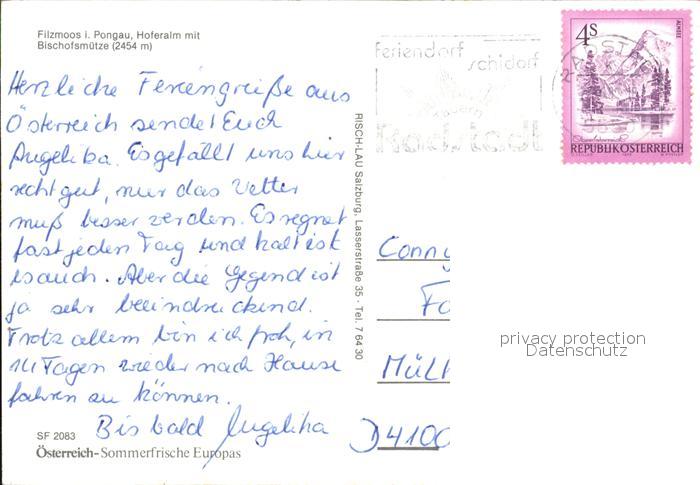 Filzmoos i. Pongau, Hoferalm mit
Bischofsmütze (2454 m)
Herzliche Feriengrüße aus
Österreich sendet Euch
Angelika. Es gefällt uns hier
recht gut, nur das Wetter
muß besser werden. Es regnet
fast jeden Tag und kalt ist
es auch. Aber die Gegend ist
ja sehr beeindruckend.
Trotz allem bin ich froh, in
14 Tagen wieder nach Hause
fahren zu können.
Bis bald Angelika
SF 2083
Österreich-Sommerfrische Europas
RISCH-LAU Salzburg, Lasserstraße 35 · Tel. 7 64 30
feriendorf
schidorf
Radstadt
4 S
ALMSEE
REPUBLIK ÖSTERREICH
Conny
Fa
Mül
D 4100
privacy protection
Datenschutz